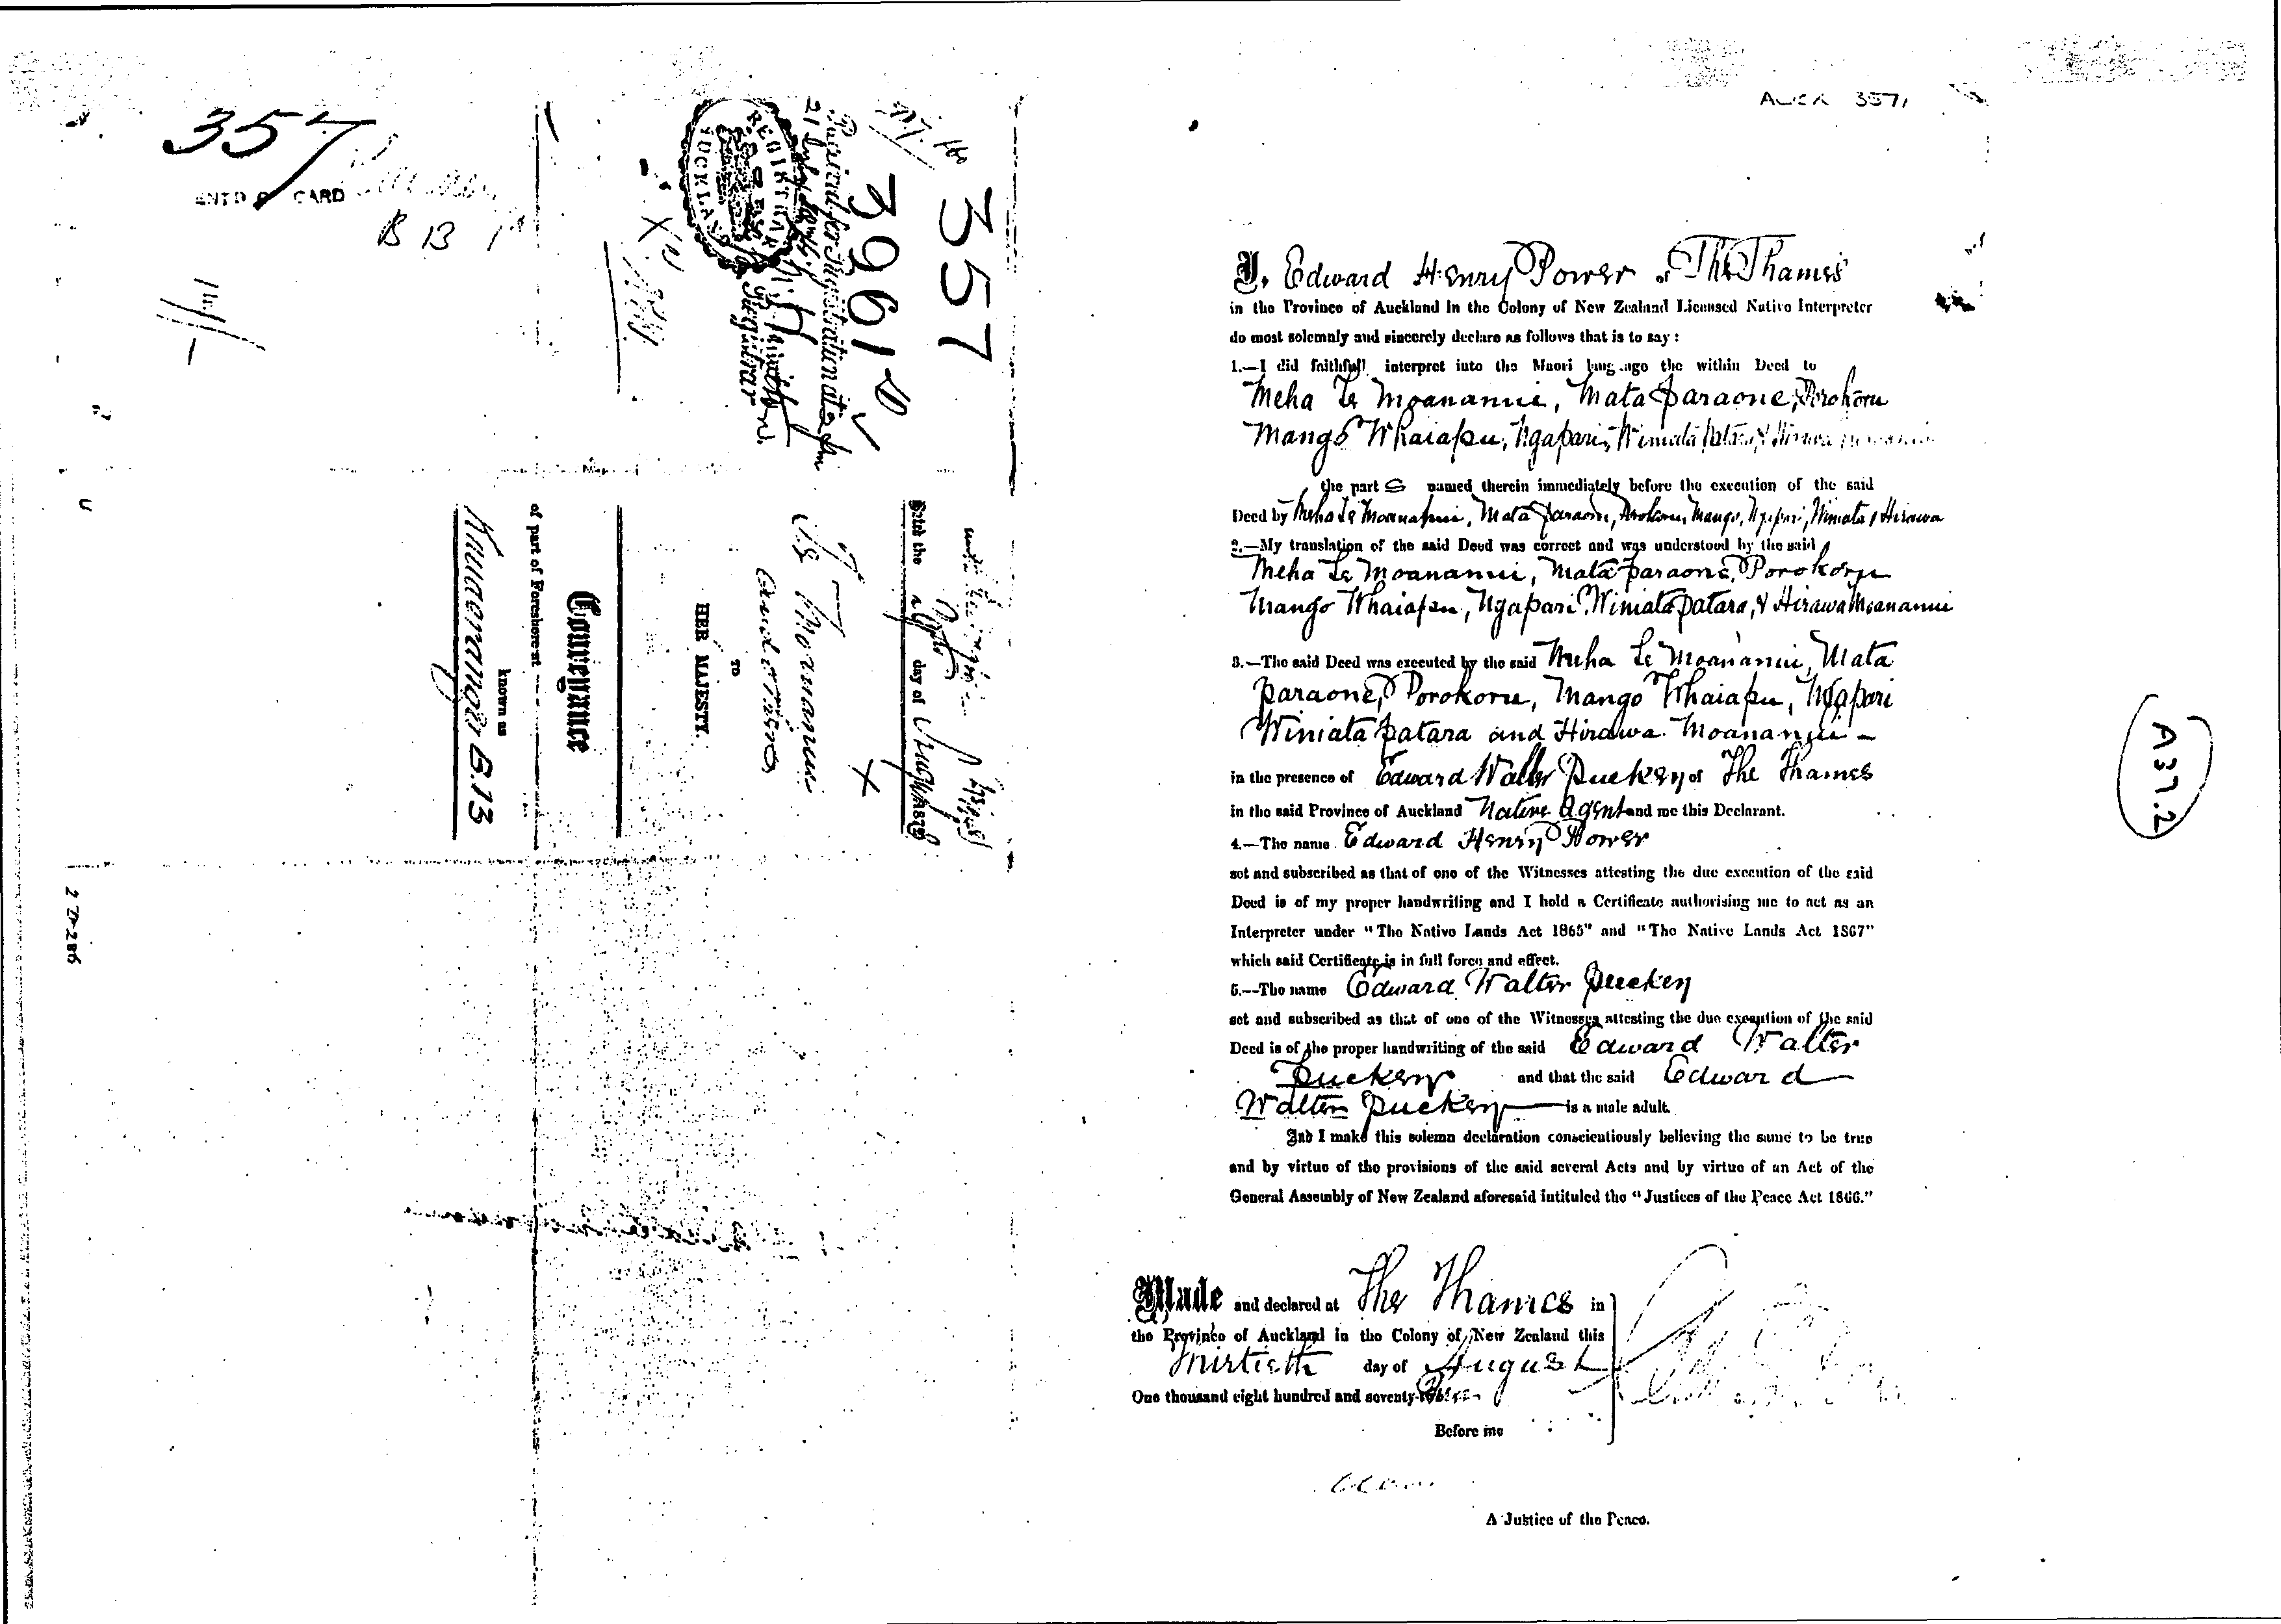 357
ENTD CARD
B 13 1A
357
3961 D
Received for Registration at
21 July
REGISTRAR
AUCKLAND
Registrar
Dated the day of 187
Te Moananui
and others
TO
HER MAJESTY.
Conveyance
of part of Foreshore at
known as
B.13
AUCK 357
I, Edward Henry Power of The Thames
in the Province of Auckland in the Colony of New Zealand Licensed Native Interpreter
do most solemnly and sincerely declare as follows that is to say:
1.—I did faithfully interpret into the Maori language the within Deed to
Meha Te Moananui, Mata Paraone, Porokoru
Mango Whaiapu, Ngapari, Winiata Patara, & Hirawa Moananui
the part s named therein immediately before the execution of the said
Deed by Meha Te Moananui, Mata Paraone, Porokoru, Mango, Ngapari, Winiata & Hirawa
2.—My translation of the said Deed was correct and was understood by the said
Meha Te Moananui, Mata Paraone, Porokoru
Mango Whaiapu, Ngapari, Winiata Patara, & Hirawa Moananui
3.—The said Deed was executed by the said Meha Te Moananui, Mata
Paraone, Porokoru, Mango Whaiapu, Ngapari
Winiata Patara and Hirawa Moananui —
in the presence of Edward Walter Puckey of The Thames
in the said Province of Auckland Native Agent and me this Declarant.
4.—The name Edward Henry Power
set and subscribed as that of one of the Witnesses attesting the due execution of the said
Deed is of my proper handwriting and I hold a Certificate authorising me to act as an
Interpreter under "The Native Lands Act 1865" and "The Native Lands Act 1867"
which said Certificate is in full force and effect.
5.—The name Edward Walter Puckey
set and subscribed as that of one of the Witnesses attesting the due execution of the said
Deed is of the proper handwriting of the said Edward Walter
Puckey and that the said Edward
Walter Puckey is a male adult.
And I make this solemn declaration conscientiously believing the same to be true
and by virtue of the provisions of the said several Acts and by virtue of an Act of the
General Assembly of New Zealand aforesaid intituled the "Justices of the Peace Act 1866."
Made and declared at The Thames in
the Province of Auckland in the Colony of New Zealand this
Thirtieth day of August
One thousand eight hundred and seventy
Before me
A Justice of the Peace.
A37.2